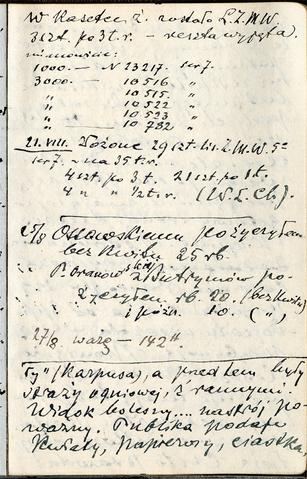 W Kasetce Ż. zostało L.Z.M.W.
3 szt. po 3 t. r. – reszta wyjęta).
mianowicie:
1000.— N 23217. kr 7.
3000.— " 10516 "
" 10515 "
" 10522 "
" 10523 "
" 10732 "
21.VIII. Złożone 29 szt. lis. Z.M.W. 5%
kr 7. na 35 t. r.
4 szt. po 3 t. 21 szt. po 1 t.
4 " " ½ t. r. (W.L.Ch.).
25/8 Ossowskiemu pożyczyłem
bez kwitu 25 rb.
P. Oranowskim z Wistrymów po-
życzyłem rb. 20. (bez kwitu)
i późn. 10. ( " )
27/8 warzę — 142 tt.
Ty" (Karpusa), a przedtem były
straży ogniowej, z rannymi!
Widok bolesny.... nastrój po-
ważny. Publika podaje
Kwiaty, papierosy, ciastka,